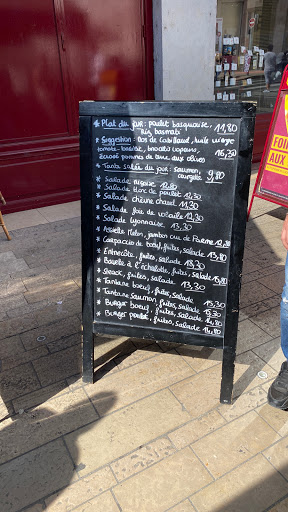 * Plat du jour: poulet basquaise 11,80
Riz basmati
* Suggestion: Dos de cabillaud, huile vierge
tomate-basilic, brocolis
pommes de terre aux olives 16,30
* Tarte salée du jour: saumon, 9,80
courgette
* Salade niçoise
* Salade bloc de poulet
* Salade chèvre chaud 11,30
* Salade foie de volaille 12,30
* Salade Lyonnaise 13,30
* Assiette melon, jambon cru de
* Carpaccio de bœuf, frites, salade
* Entrecôte, frites, salade
* Bavette à l'échalotte, frites, salade
* Steack, frites, salade 13,30
* Tartare boeuf, frites, salade
* Tartare Saumon, frites, salade 15,30
* Burger boeuf, frites, salade
* Burger poulet, frites, salade 14,80
FOI
AUX